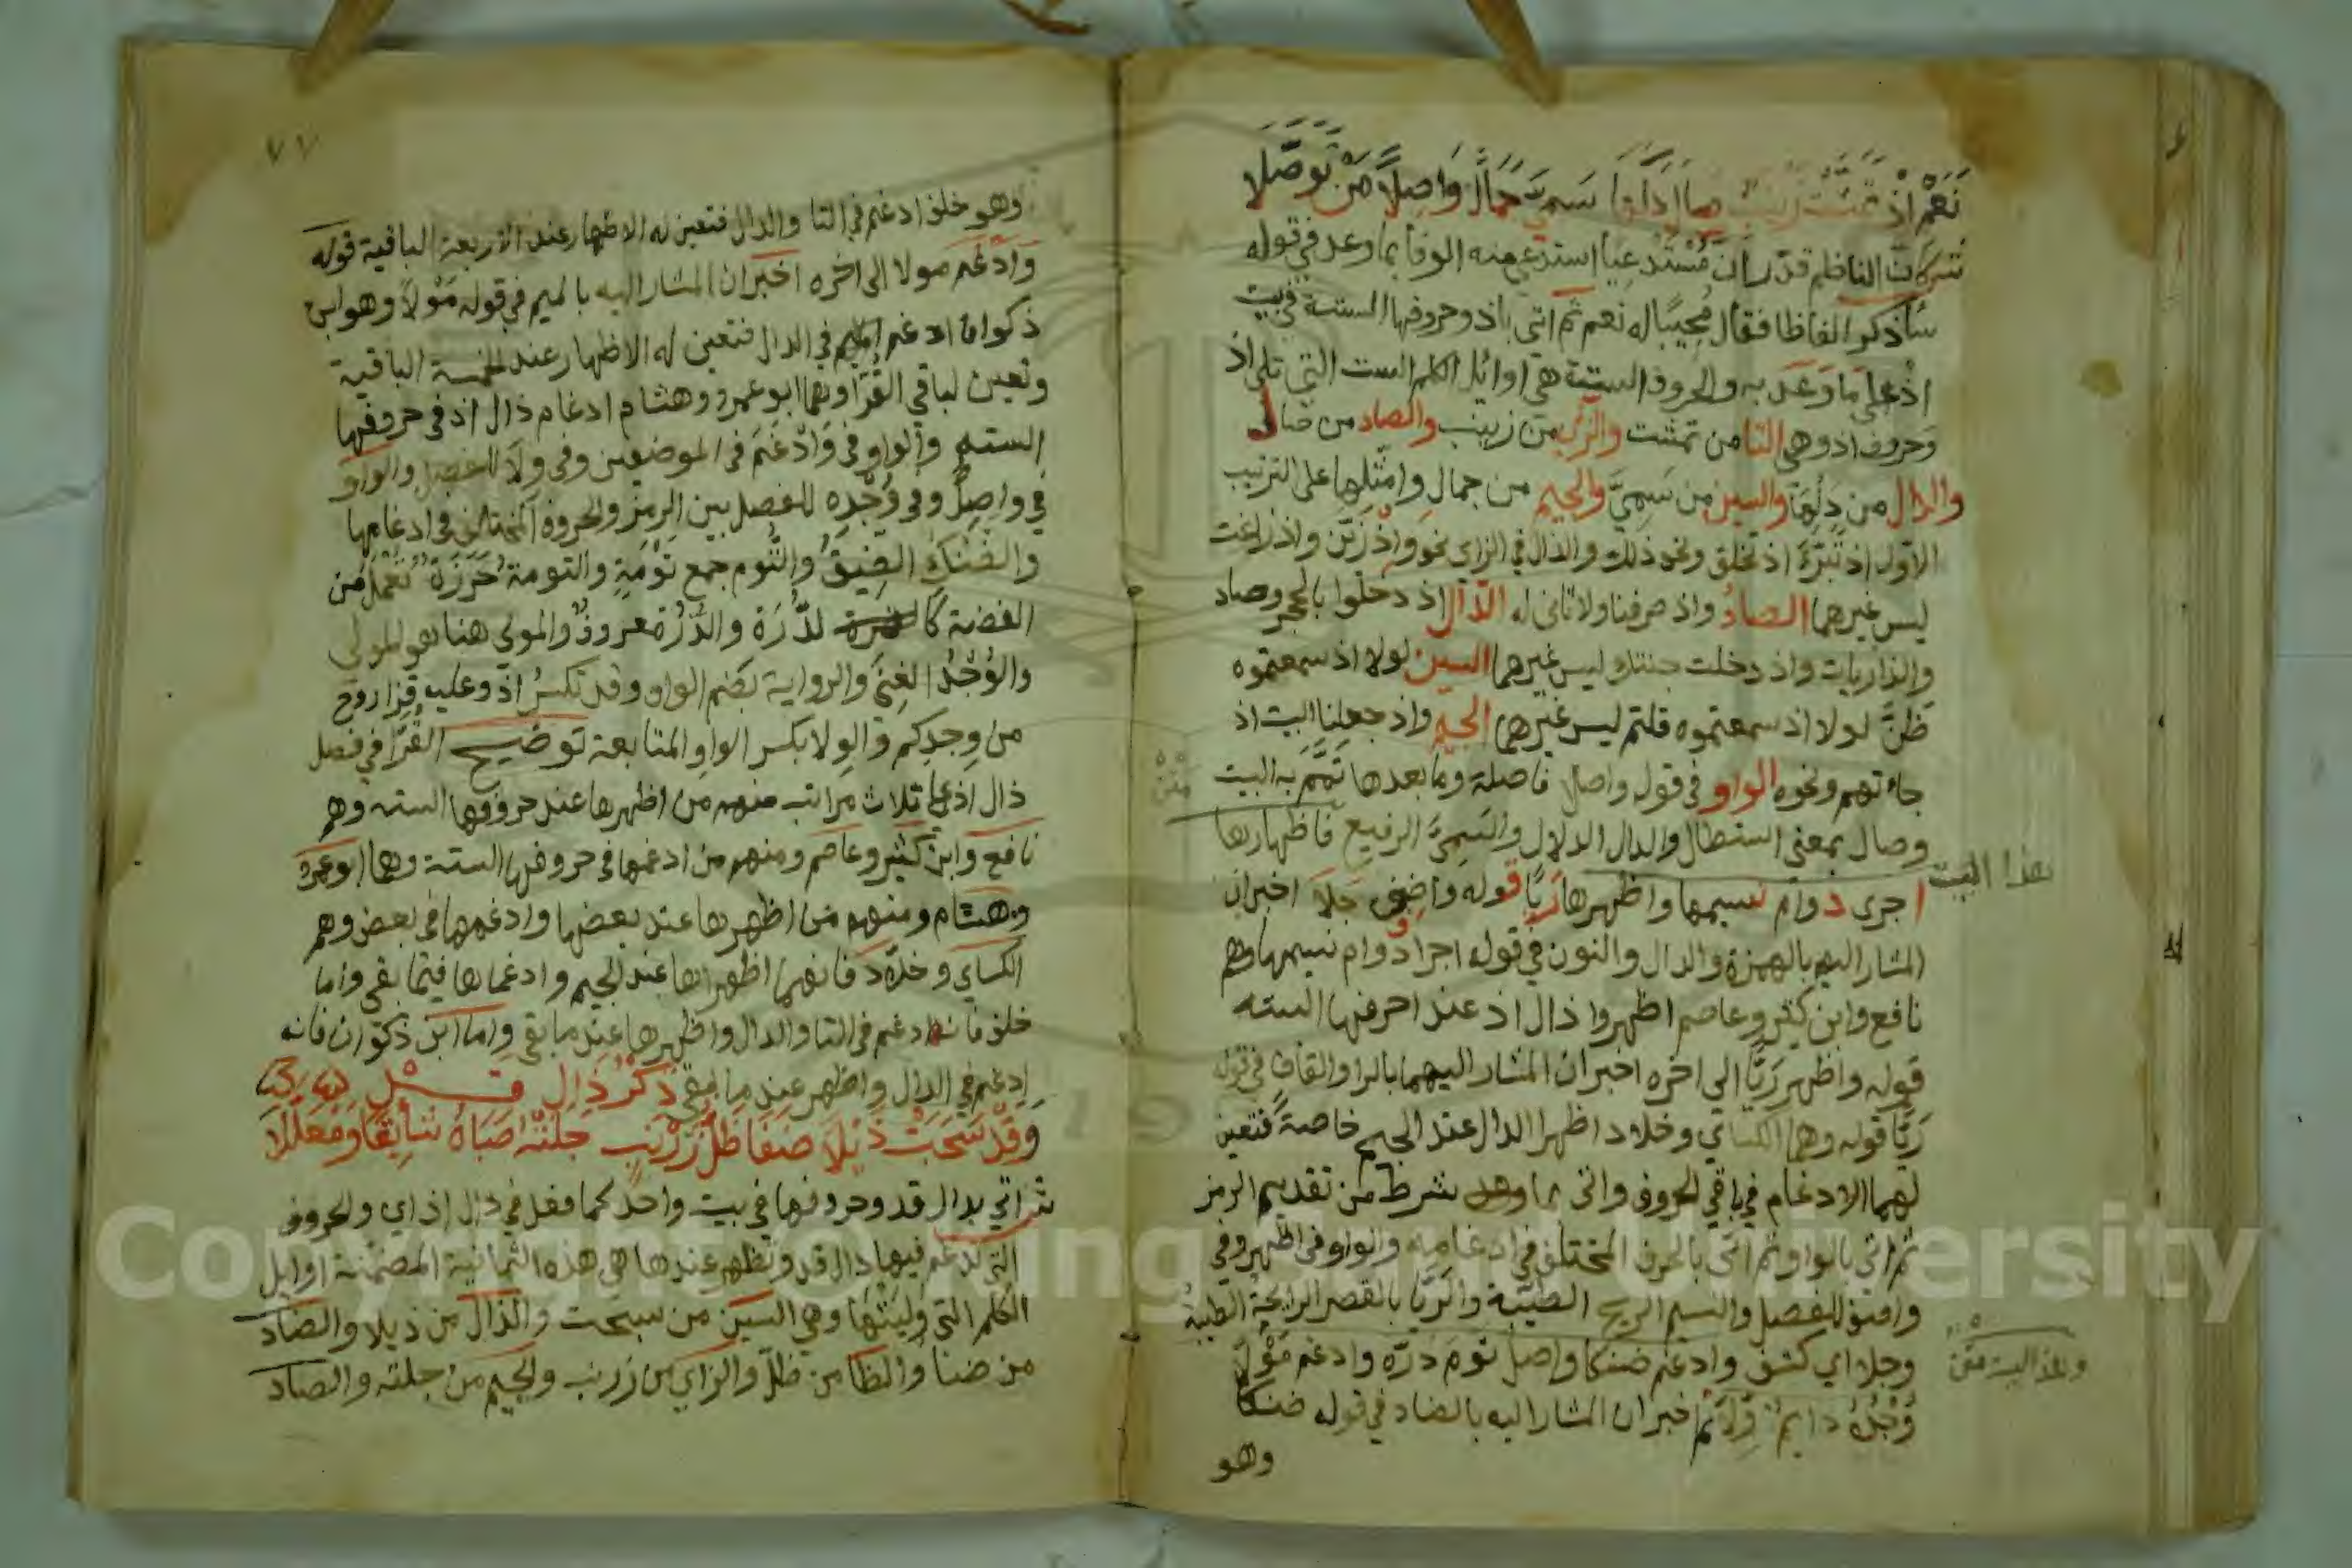 نَعَمْ اذْ تَمَشَّتْ زَيْنَبٌ صَالَ دَلُّهَا سَمِيَّ جَمَالٍ وَاصِلًا مَنْ تَوَصَّلَا
شرع كان الناظم قدّر ان مُسْتَدعِيا استدعى منه الوفا بما وعد في قوله
سأذكر الفاظا فقال مُجِيبًا له نعم ثم اتى باذ وحروفها الستة في بيت
اذ على ما وَعَد به والحروف الستة هي اوائل الكلم الست التي تلى اذ
وحروف اذ وهي التا من تمشت والزاى من زينب والصاد من صال
والدال من دلّها والسين من سَمِيَّ والجيم من جمال وامثلها على الترتيب
الاول اذ تَبَرَّأَ اذ تخلق ونحو ذلك والذال في الزاى نحو وَاِذْ زَيَّن واذ زاغت
ليس غيرهما الصادُ واذ صرفنا ولا ثانى له الدال اذ دخلوا بالحجر وصاد
والذاريات واذ دخلت جنتك ليس غيرهما السين لولا اذ سمعتموه
ظنَّ لولا اذ سمعتموه قلتم ليس غيرهما الجيم واذ جعلنا البيت اذ
جاءتهم ونحوه الواو في قوله واصلا فاصلة وما بعدها تَمَّمَ به البيت
وصال بمعنى استطال والدال الدلال والسَمِيَّ الرفيع فاظهارها
هذا البيت
اجرى دوام نسيمها واظهر رَيَّا قوله واصف جَلَا اخبر ان
المشار اليهم بالهمزة والدال والنون في قوله اجرا دوام نسيمها وهم
نافع وابن كثير وعاصم اظهروا ذال اذ عند احرفها السته
قوله واظهر رَيَّا الى اخره اخبر ان المشار اليهما بالرا والقاف في قوله
رَيَّا قوله وهما الكساي وخلاد اظهرا الذال عند الجيم خاصة فتعين
لهما الادغام في باقي الحروف واتى بما وعد بشرط من تقديم الرمز
ثم اتي بالواو ثم اتى بالحرف المختلف في ادغامه والواو في اظهر وفي
واصف للفصل والنسيم الريح الطيّبة والرَّيَّا بالقصر الرايحة الطيبة
وجلا اي كشف وادغم ضنكا واصل توم دُرّه وادغم مَوْلَى
وهذا البيت متن
وُجْدُهُ دايمٌ وِلَا ثم اخبر ان المشار اليه بالضاد في قوله ضنكا
وهو
٧٧
وهو خلف ادغم في التا والدال فتعين له الاظهار عند الاربعة الباقية قوله
وَادْغَم مولا الى اخره اخبر ان المشار اليه بالميم في قوله مَوْلا وهو ابن
ذكوان ادغم في الدال فتعين له الاظهار عند الخمسة الباقية
وتعين لباقي القُرّا وهما ابو عمرو وهشام ادغام ذال اذ في حروفها
الستة والواو في وَادْغَمَ في الموضعين وفي ولَا للفصل والواو
في واصِلٌ وفي وُجْدِه للفصل بين الرمز والحروف المختلف في ادغامها
والضنك الضِيقُ والتُوم جمع تَوْمَةِ والتومة خَرَزَة تُعْمَل من
الفضة كا لدُّرَة والدُّرَّة معروفٌ والمولى هنا هو الولي
والوُجْدُ الغِنَى والرواية بضم الواو وقد تكسر اذ وعليه قرا روح
من وِجدِكم والوِلا بكسر الواو المتابعة توضيح القُرّا في فصل
ذال اذ على ثلاث مراتب منهم من اظهرها عند حروفها السته وهم
نافع وابن كثير وعاصم ومنهم من ادغمها في حروفها الستة وهما ابو عمرو
وهشام ومنهم من اظهرها عند بعضها وادغمها في بعض وهم
الكساي وخلّاد فانهما اظهراها عند الجيم وادغماها فيما بقى واما
خلف فانه ادغم في التا والدال واظهرها عند ما بقى واما ابن ذكوان فانه
ادغم في الدال واظهر عند ما بقى ذكْرُ دَالِ قَدْ
وَقَدْ سَحَبَتْ ذَيْلًا ضَفَا ظَلَّ زَرْنَبٌ جَلَتْهُ صَبَاهُ شَايِقًا وَمُعَلَّلَا
ثم اتي بدال قد وحروفها في بيت واحد كما فعل في ذال اذ اي والحروف
التي تدغم فيها دال قد وتظهر عندها هي هذه الثمانية المضمّنة اوايل
الكلم التي وَلِيَتْها وهي السين من سحبت والذال من ذيلا والضاد
من ضفا والظا من ظلّ والزاي من زرنب والجيم من جلته والصاد
Copyright © King Saud University